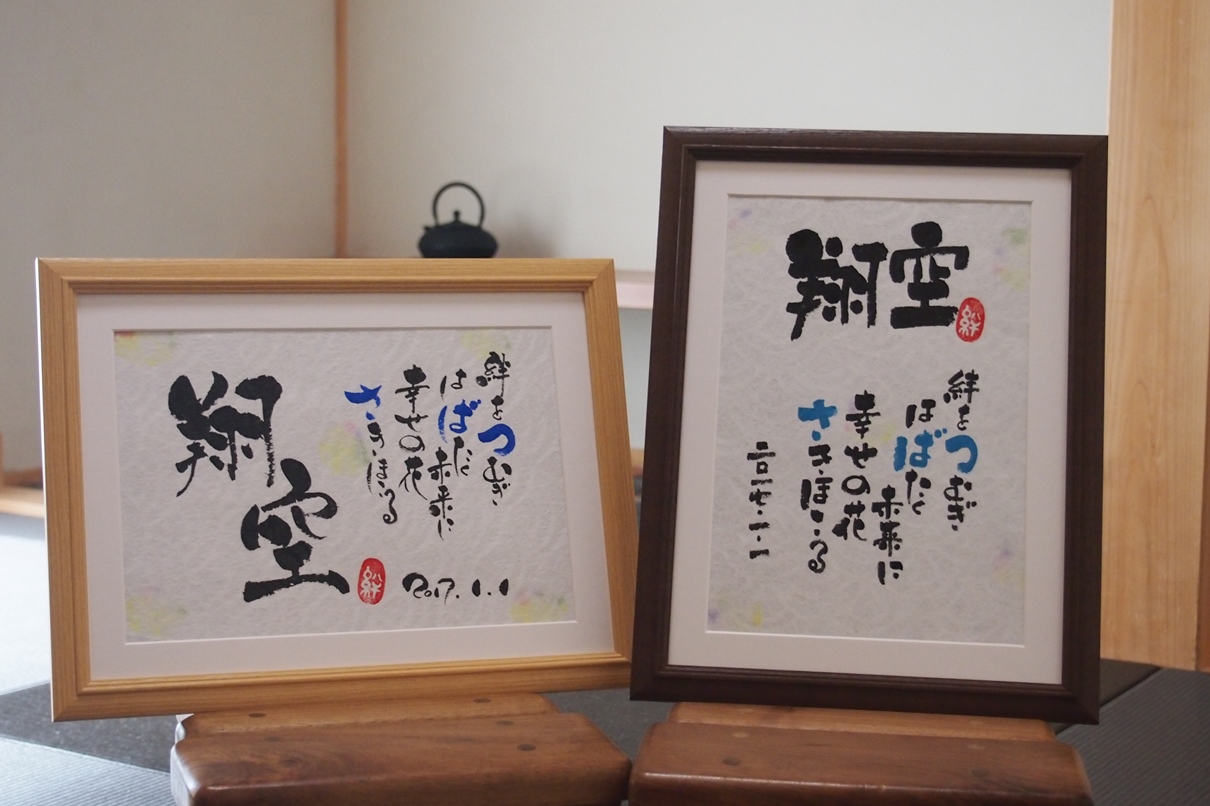 翔空
絆をつむぎ
はばたく
未来に
幸せの花
さきほこる
絆
2017.1.1
翔空
絆
絆をつむぎ
はばたく
未来に
幸せの花
さきほこる
二〇一七・一・一